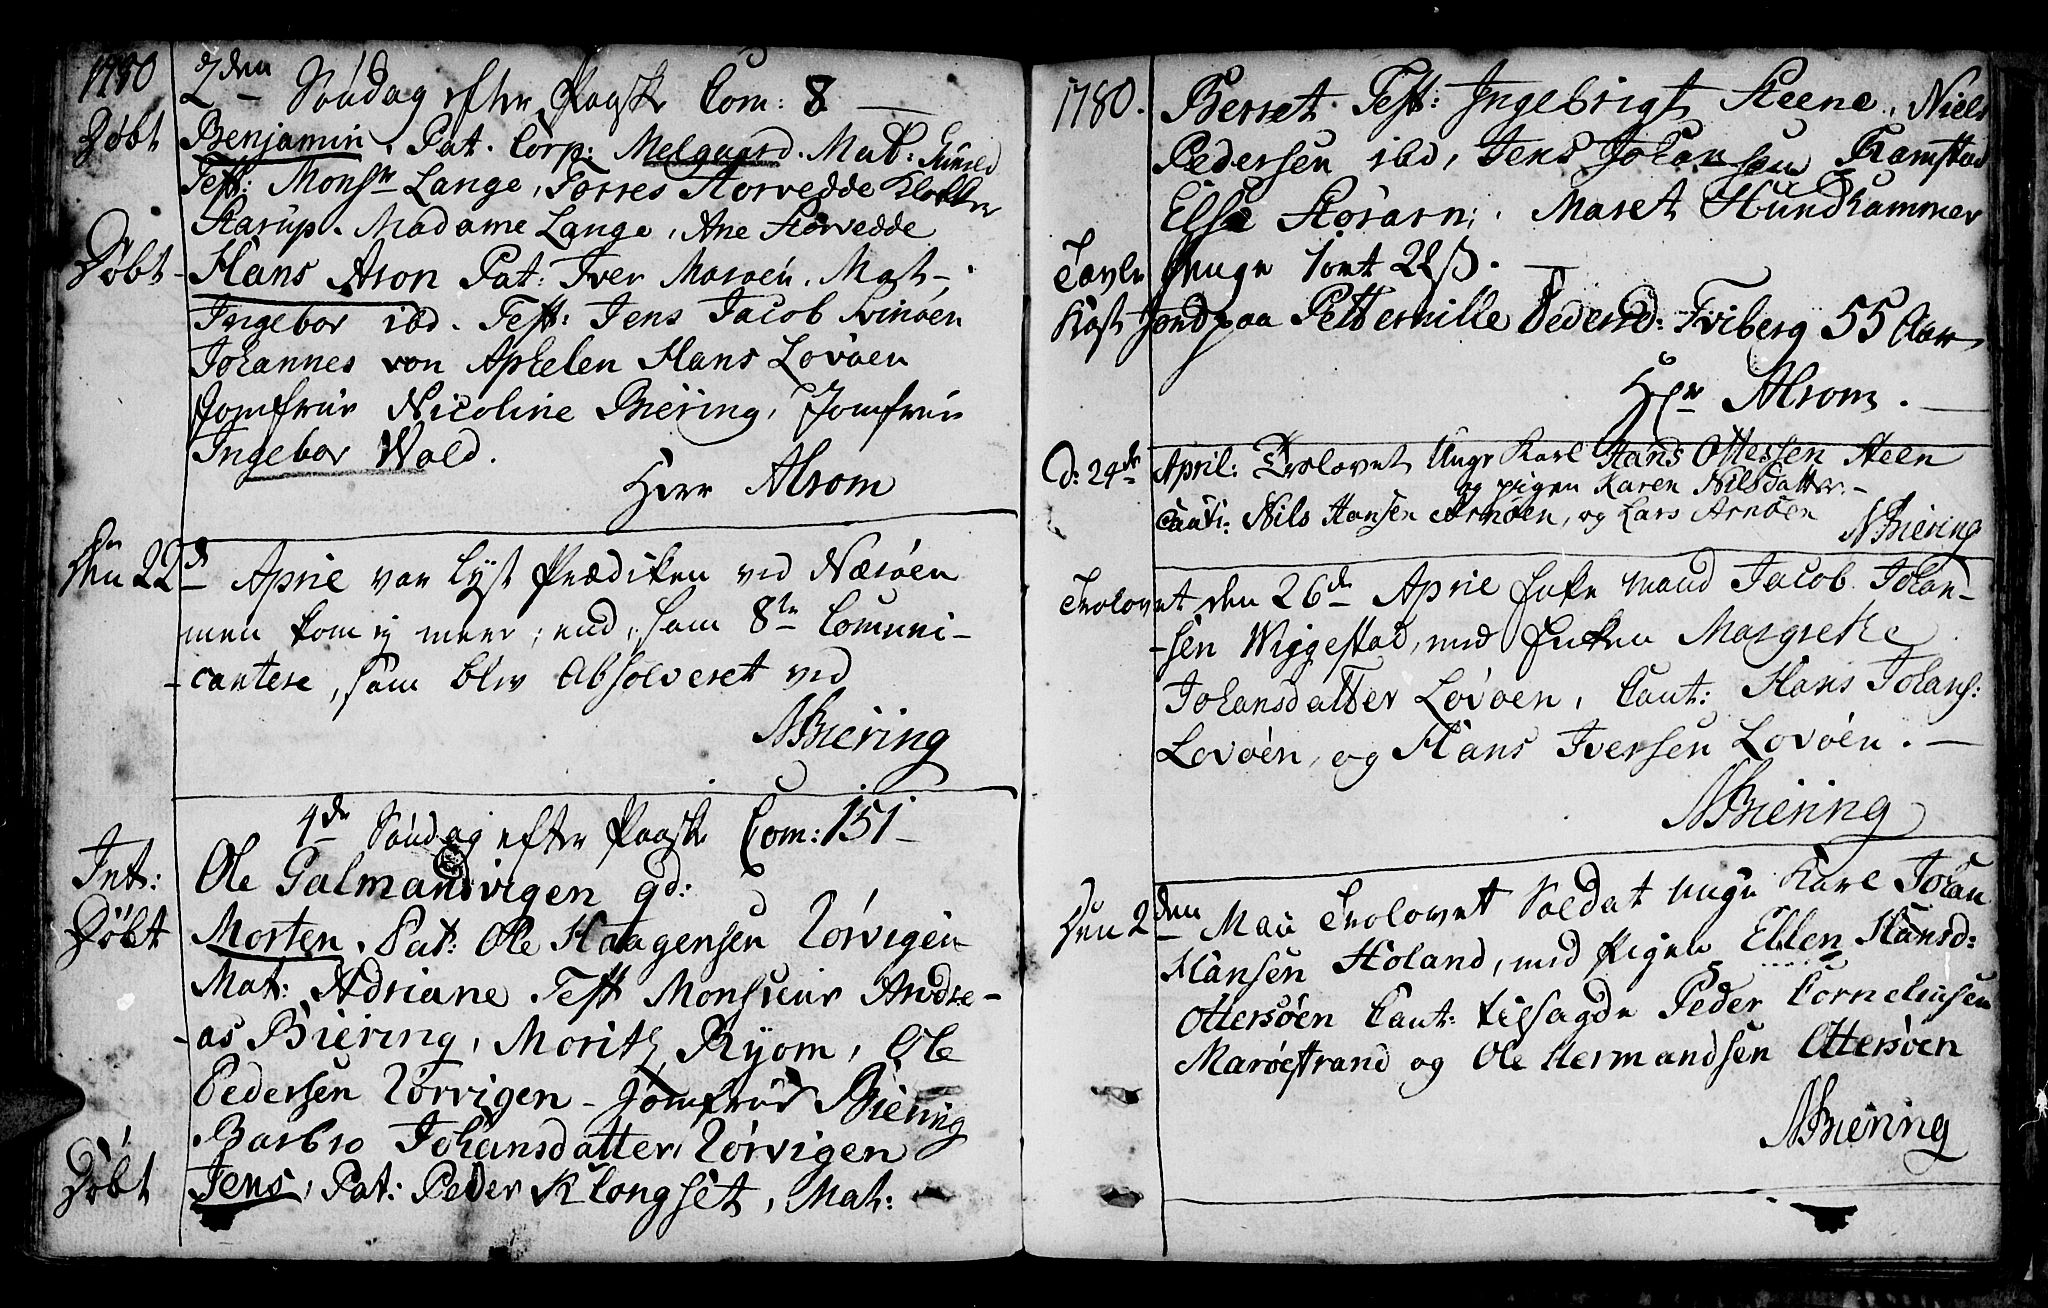 1780
2den Søndag efter Paaske Com: 8
Døbt Benjamin. Pat. Corp: Melgaard. Mat:
Test: Monsr Lange, Torres Storvedde Klokker
Starup. Madame Lange, Ane Storvedde
Døbt Hans Aron Pat: Iver Marøen. Mat:
Ingebor ibd. Test: Jens Jacob Svinøen
Johannes von Aphelen Hans Lovøen
Jomfrue Nicoline Biering, Jomfrue
Ingebor Wold.
Herr Alrom
Den 22d April var lyst Prædiken vid Nærøen
men kom ej meer, end, som 8te Comuni-
cantere, som blev Absolveret ved
NBiering
4de Søndag efter Paaske Com: 151
Int: Ole Galmandsvigen gd:
Døbt Morten. Pat: Ole Haagensen Rørvigen
Mat: Adriane Test Monsieur Andre-
as Biering, Moritz Ryom, Ole
Pedersen Rørvigen - Jomfrue Biering
Barbro Johansdatter Rørvigen
Døbt Jens, Pat: Peder Klongset, Mat:
1780. Berset. Test: Ingebrigt Steene, Niels
Pedersen ibd, Jens Johansen Ramstad
Else Storarn: Maret Hundhammer
Tavle penge 1 ort 22 ß.
Kast Jord paa Petternille Pedersd: Fviberg 55 Aar
Hr Alrom.
D: 24de April: Trolovet Unge Karl Hans Ottersen Steen
og pigen Karen Nilsdatter.
Cauti: Nils Hansen Arnøen, og Lars Arnøen
NBiering
Trolovet den 26de April Enke Mand Jacob Johan-
sen Wiggestad, med Enken Margrete
Johansdatter Lovøen, Caut: Hans Johans:
Lovøen, og Hans Iversen Lovøen.
NBiering
Den 2den Maii Trolovet Soldat unge Karl Johan
Hansen Høland, med Pigen Ellen Hansd:
Ottersøen Caut: tilsagde Peder Corneliusen
Marøestrand og Ole Hermandsen Ottersøen
NBiering